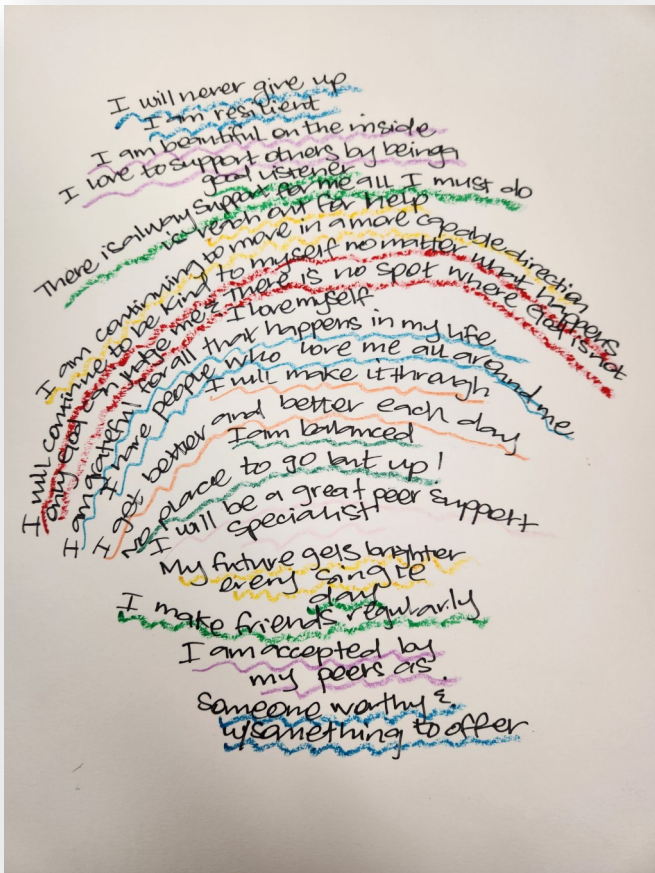 I will never give up
I am resilient
I am beautiful on the inside
I love to support others by being a
good listener
There is alway support for me all I must do
is reach out for help
I am continuing to move in a more capable direction
I will continue to be kind to myself no matter what happens
only God can judge me & There is no spot where God is not
I love myself
I am grateful for all that happens in my life
I have people who love me all around me
I will make it through
I get better and better each day
I am balanced
No place to go but up!
I will be a great peer support
specialist
My future gets brighter
every single
day
I make friends regularly
I am accepted by
my peers as
someone worthy &
w/something to offer